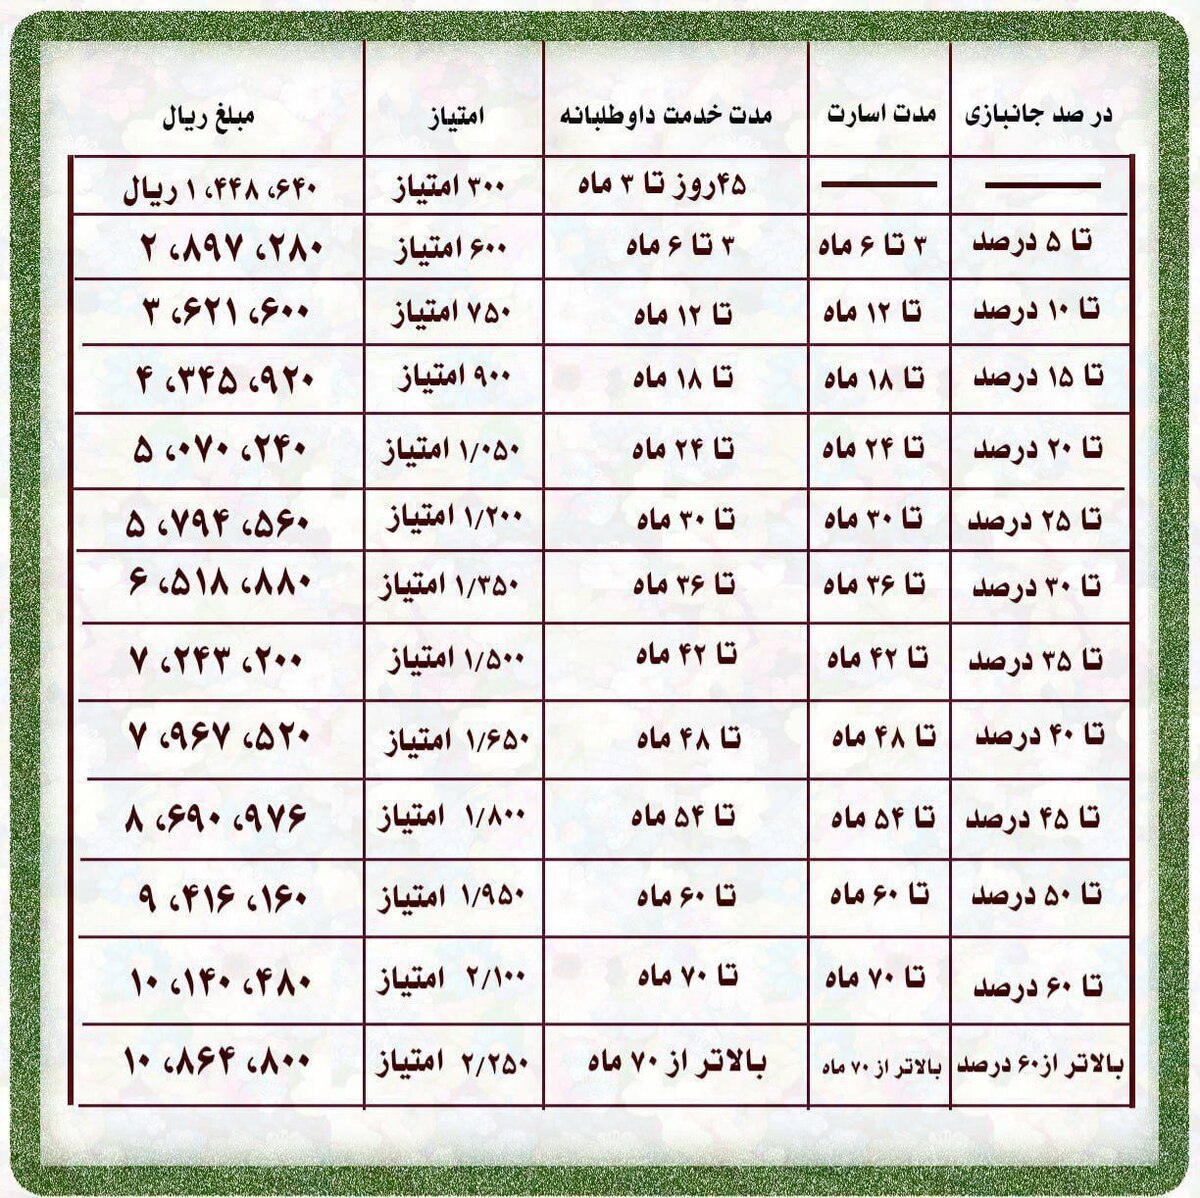 در صد جانبازی مدت اسارت مدت خدمت داوطلبانه امتیاز مبلغ ریال
۴۵روز تا ۳ ماه ۳۰۰ امتیاز ۱،۴۴۸،۶۴۰ ریال
تا ۵ درصد ۳ تا ۶ ماه ۳ تا ۶ ماه ۶۰۰ امتیاز ۲،۸۹۷،۲۸۰
تا ۱۰ درصد تا ۱۲ ماه تا ۱۲ ماه ۷۵۰ امتیاز ۳،۶۲۱،۶۰۰
تا ۱۵ درصد تا ۱۸ ماه تا ۱۸ ماه ۹۰۰ امتیاز ۴،۳۴۵،۹۲۰
تا ۲۰ درصد تا ۲۴ ماه تا ۲۴ ماه ۱/۰۵۰ امتیاز ۵،۰۷۰،۲۴۰
تا ۲۵ درصد تا ۳۰ ماه تا ۳۰ ماه ۱/۲۰۰ امتیاز ۵،۷۹۴،۵۶۰
تا ۳۰ درصد تا ۳۶ ماه تا ۳۶ ماه ۱/۳۵۰ امتیاز ۶،۵۱۸،۸۸۰
تا ۳۵ درصد تا ۴۲ ماه تا ۴۲ ماه ۱/۵۰۰ امتیاز ۷،۲۴۳،۲۰۰
تا ۴۰ درصد تا ۴۸ ماه تا ۴۸ ماه ۱/۶۵۰ امتیاز ۷،۹۶۷،۵۲۰
تا ۴۵ درصد تا ۵۴ ماه تا ۵۴ ماه ۱/۸۰۰ امتیاز ۸،۶۹۰،۹۷۶
تا ۵۰ درصد تا ۶۰ ماه تا ۶۰ ماه ۱/۹۵۰ امتیاز ۹،۴۱۶،۱۶۰
تا ۶۰ درصد تا ۷۰ ماه تا ۷۰ ماه ۲/۱۰۰ امتیاز ۱۰،۱۴۰،۴۸۰
بالاتر از۶۰ درصد بالاتر از ۷۰ ماه بالاتر از ۷۰ ماه ۲/۲۵۰ امتیاز ۱۰،۸۶۴،۸۰۰